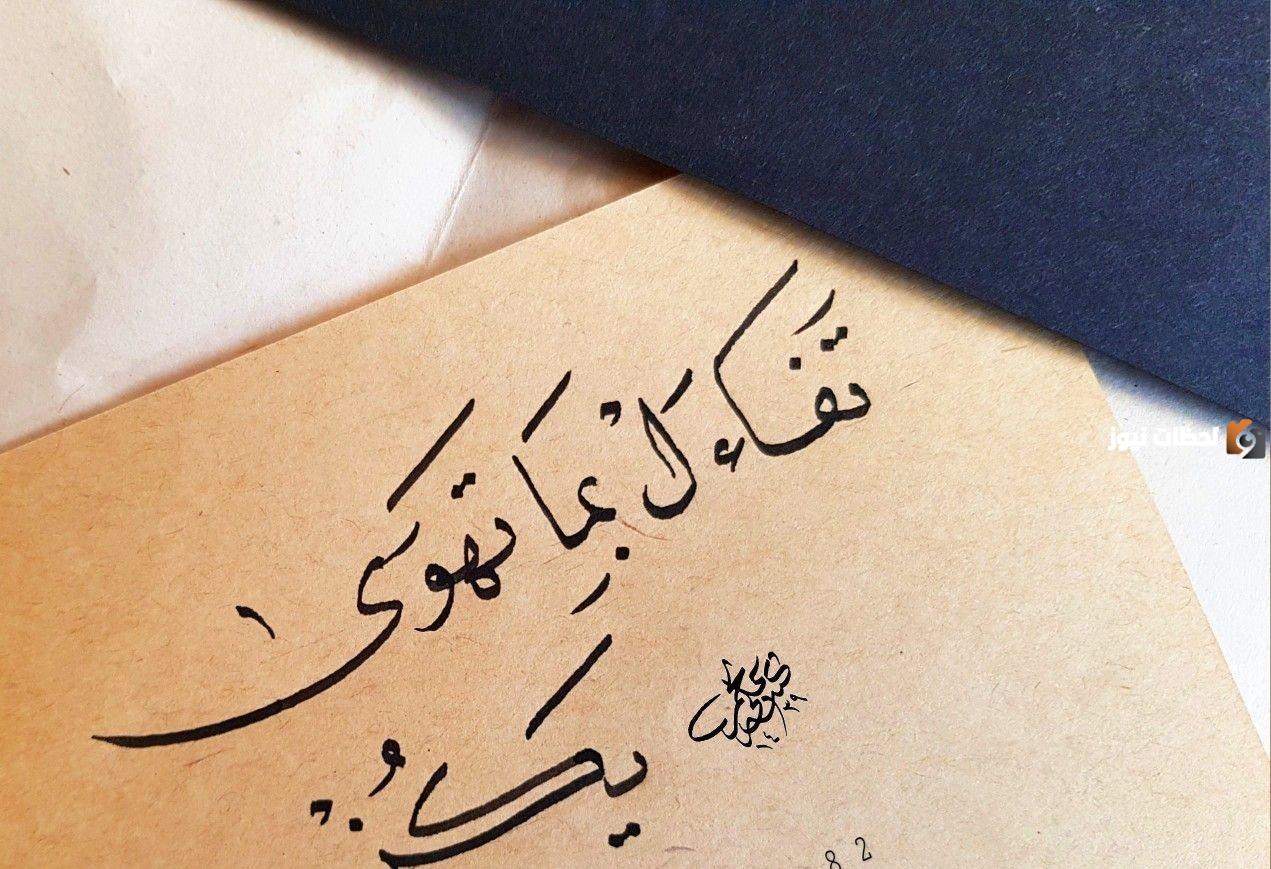 تفاءَلْ بِمَا تَهوَى
يكُنْ
لحظات نيوز
82